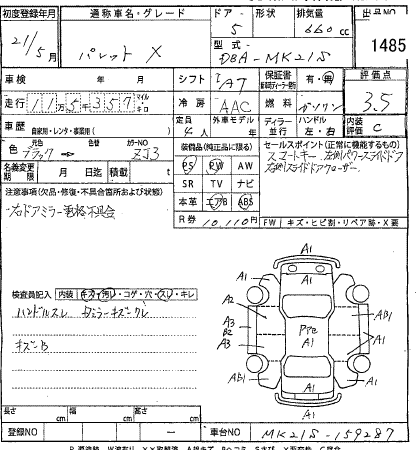 初度登録年月 通称車名・グレード ドア・形状 排気量 出品NO
21/5月 パレット X 5 660cc 1485
型式 DBA-MK21S
車検 年 月 シフト AT 保証書 有・無 評価点
走行 115357 マイル キロ 3.5
冷房 AAC 燃料 ガソリン
車歴 自家用・レンタ・事業用( ) 定員 4人 外車モデル 年 ディーラー 並行 ハンドル 左・右 内装評価 C
色 元色 ブラック 色替 カラーNO ZJ3
装備品(純正品に限る) セールスポイント(正常に機能するもの)
PS PW AW スマートキー
名義変更期限 月 日迄 積載 t
SR TV ナビ
注意事項(欠品・修復・不具合箇所および状態) 本革 エアB ABS
R券 10,110円
FW キズ・ヒビ割・リペア跡・X要
検査員記入 内装 キズ・汚・コゲ・穴・スレ・キレ
ハンドルスレ
キズB
A1
A1
A1 A1
A2 AB1
A3 B2 A3 PPe A1 A1
AB1 A1
A1
A1
長さ cm 幅 cm 高さ cm
登録NO 車台NO MK21S-159287